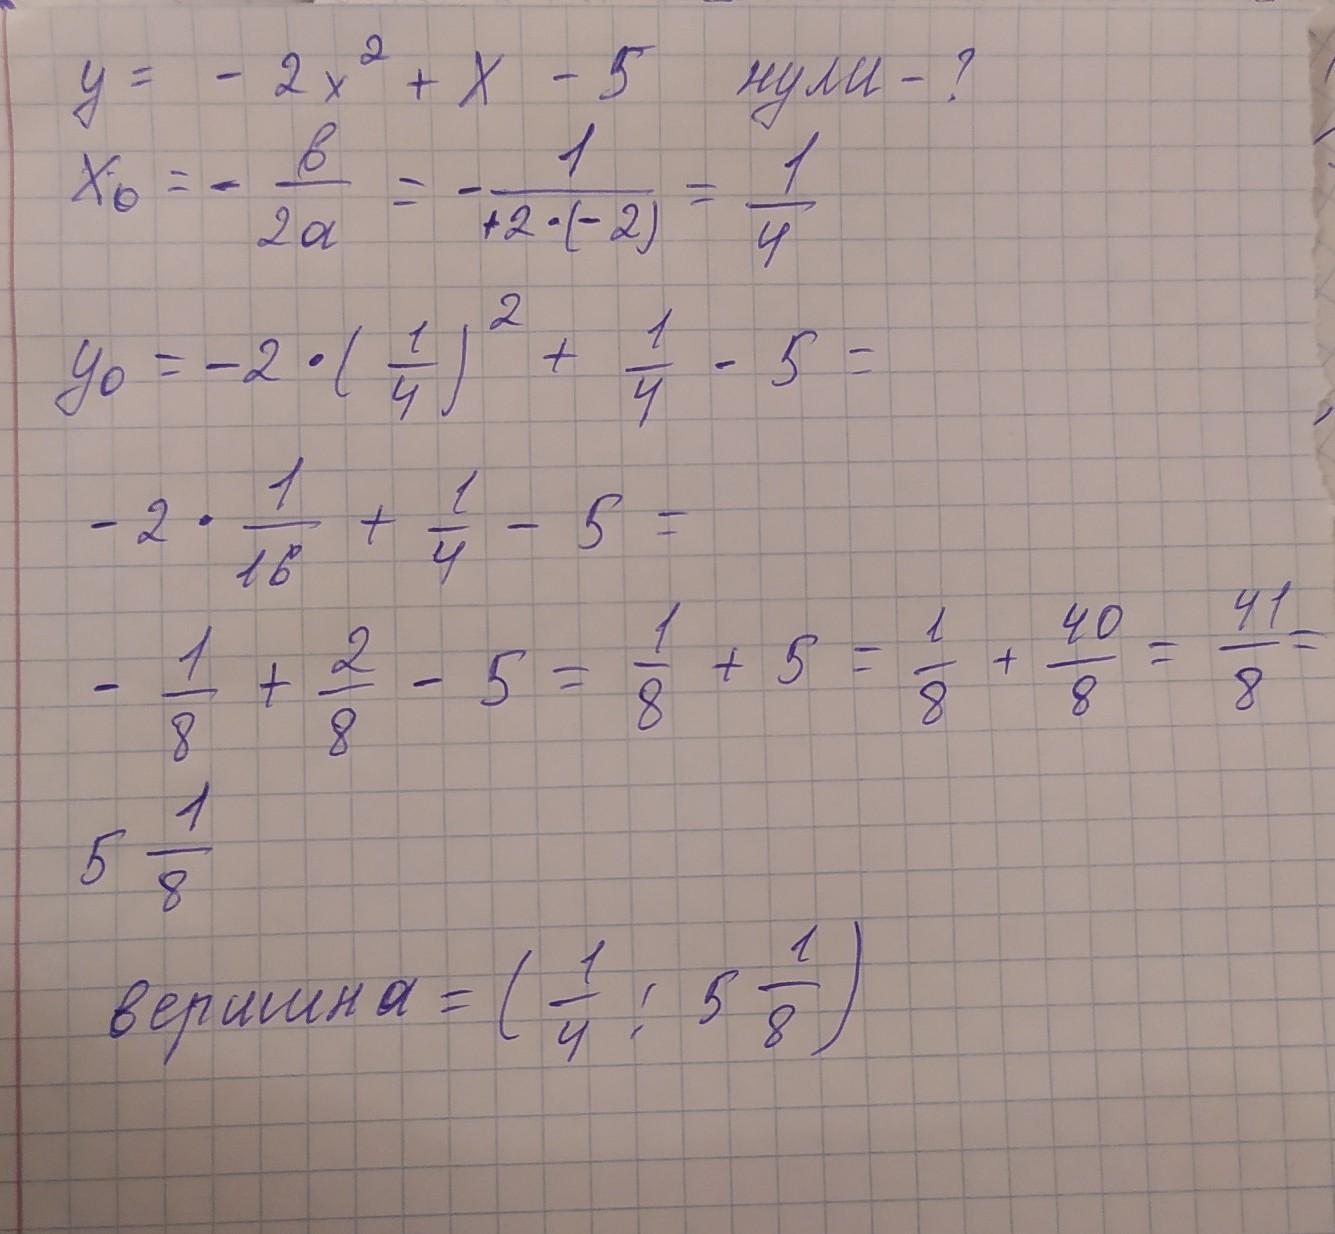 y = - 2x² + x - 5 нули - ?
x₀ = - в/2a = - 1/+2·(-2) = 1/4
y₀ = -2 · (1/4)² + 1/4 - 5 =
- 2 · 1/16 + 1/4 - 5 =
- 1/8 + 2/8 - 5 = 1/8 + 5 = 1/8 + 40/8 = 41/8 =
5 1/8
вершина = (1/4 ; 5 1/8)